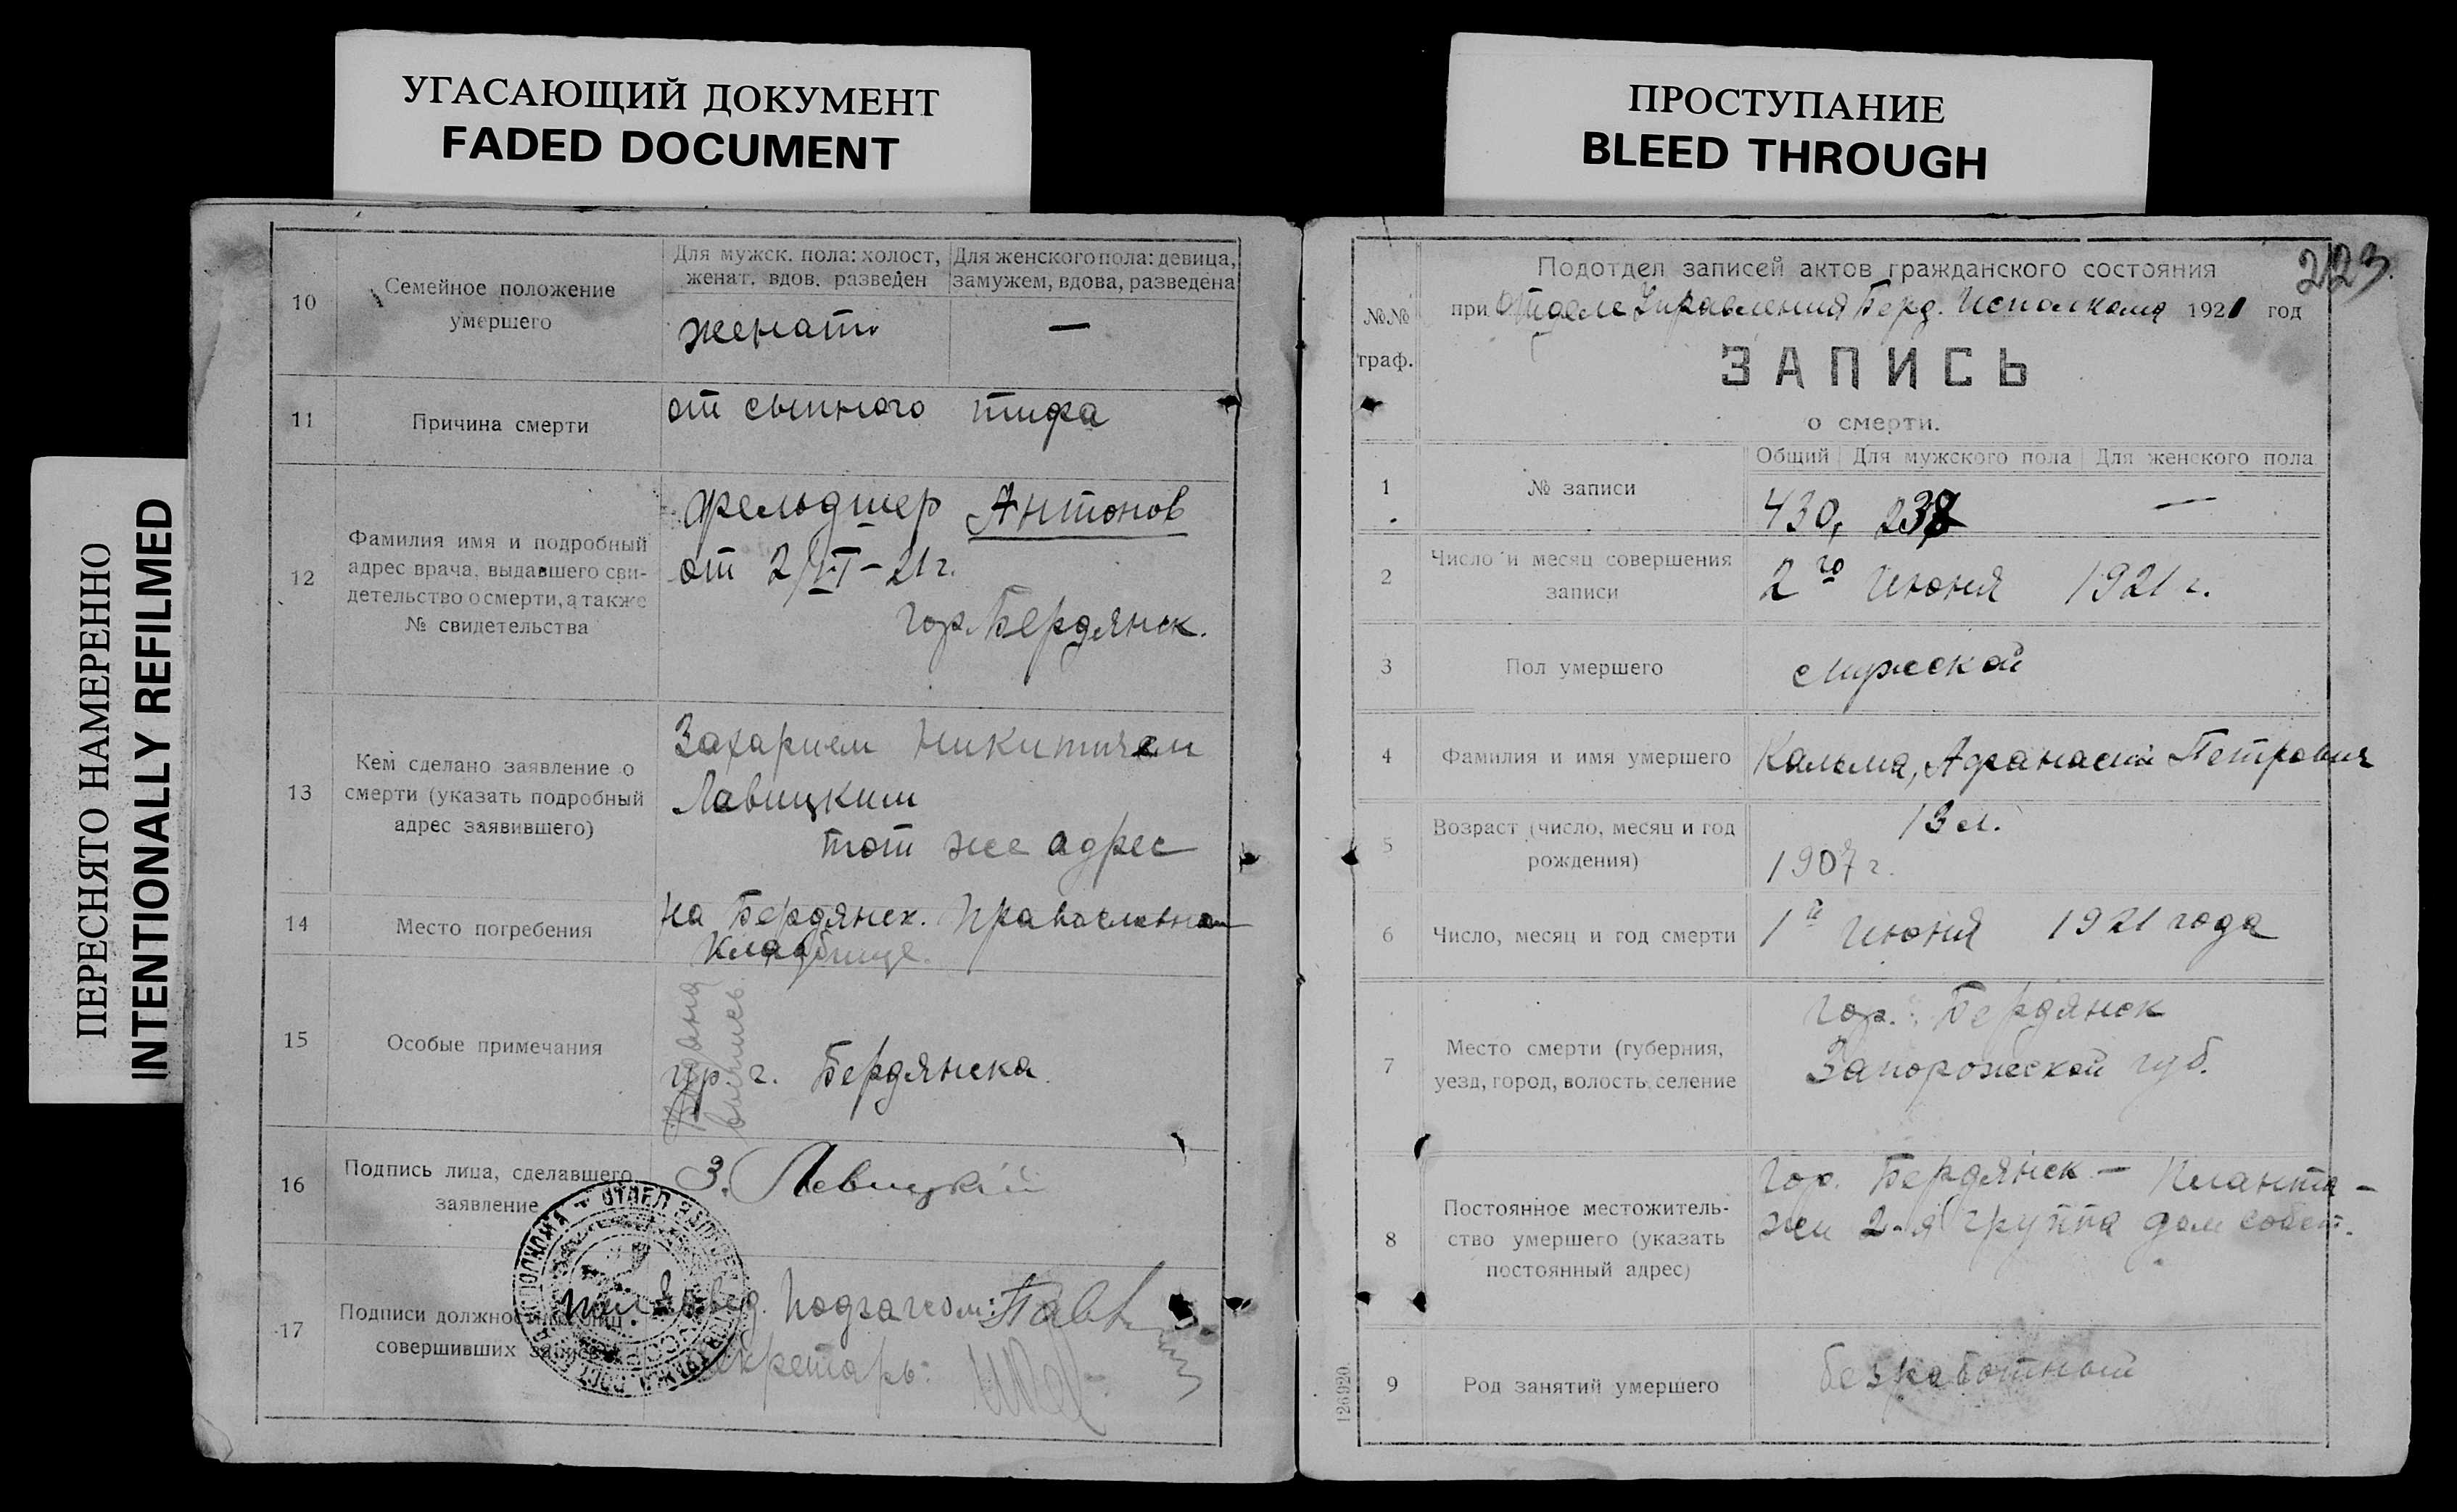 УГАСАЮЩИЙ ДОКУМЕНТ
FADED DOCUMENT
ПРОСТУПАНИЕ
BLEED THROUGH
ПЕРЕСНЯТО НАМЕРЕННО
INTENTIONALLY REFILMED
10
Семейное положение
умершего
Для мужск. пола: холост,
женат. вдов. разведен
Для женского пола: девица,
замужем, вдова, разведена
женат
—
11
Причина смерти
от сыпного тифа
12
Фамилия имя и подробный
адрес врача, выдавшего сви-
детельство о смерти, а также
№ свидетельства
Фельдшер Антонов
от 2/VI-21 г.
гор. Бердянск.
13
Кем сделано заявление о
смерти (указать подробный
адрес заявившего)
Захарием Никитичем
Лавицким
тот же адрес
14
Место погребения
на Бердянск. Православном
кладбище.
15
Особые примечания
Выдана
выпись
гр. г. Бердянска.
16
Подпись лица, сделавшего
заявление
З. Левицкий
17
Подписи должностных лиц
совершивших запись
Завед. Подзагсом:
Секретарь:
223.
№№
граф.
Подотдел записей актов гражданского состояния
при Отделе Управления Берд. Исполкома 1921 год
ЗАПИСЬ
о смерти.
1
№ записи
Общий
Для мужского пола
Для женского пола
430,
237
—
2
Число и месяц совершения
записи
2го Июня 1921 г.
3
Пол умершего
Мужской
4
Фамилия и имя умершего
Кальма, Афанасий Петрович
5
Возраст (число, месяц и год
рождения)
13 л.
1907 г.
6
Число, месяц и год смерти
1й Июня 1921 года
7
Место смерти (губерния,
уезд, город, волость, селение
гор. Бердянск
Запорожской губ.
8
Постоянное местожитель-
ство умершего (указать
постоянный адрес)
Гор. Бердянск — Планта-
жи 2-я группа дом собст.
9
Род занятий умершего
безработный
126920